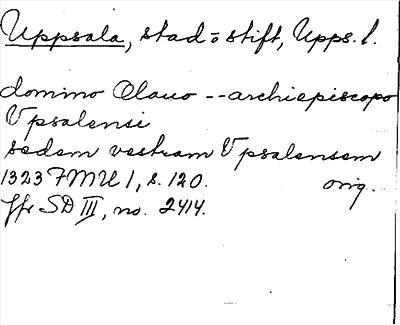 Uppsala, stad o stift, Upps. l.
domino Olauo -- archiepiscopo
Vpsalensi
sedem vestram Vpsalensem
1323 FMU 1, s. 120. orig.
Jfr SD III, no. 2414.